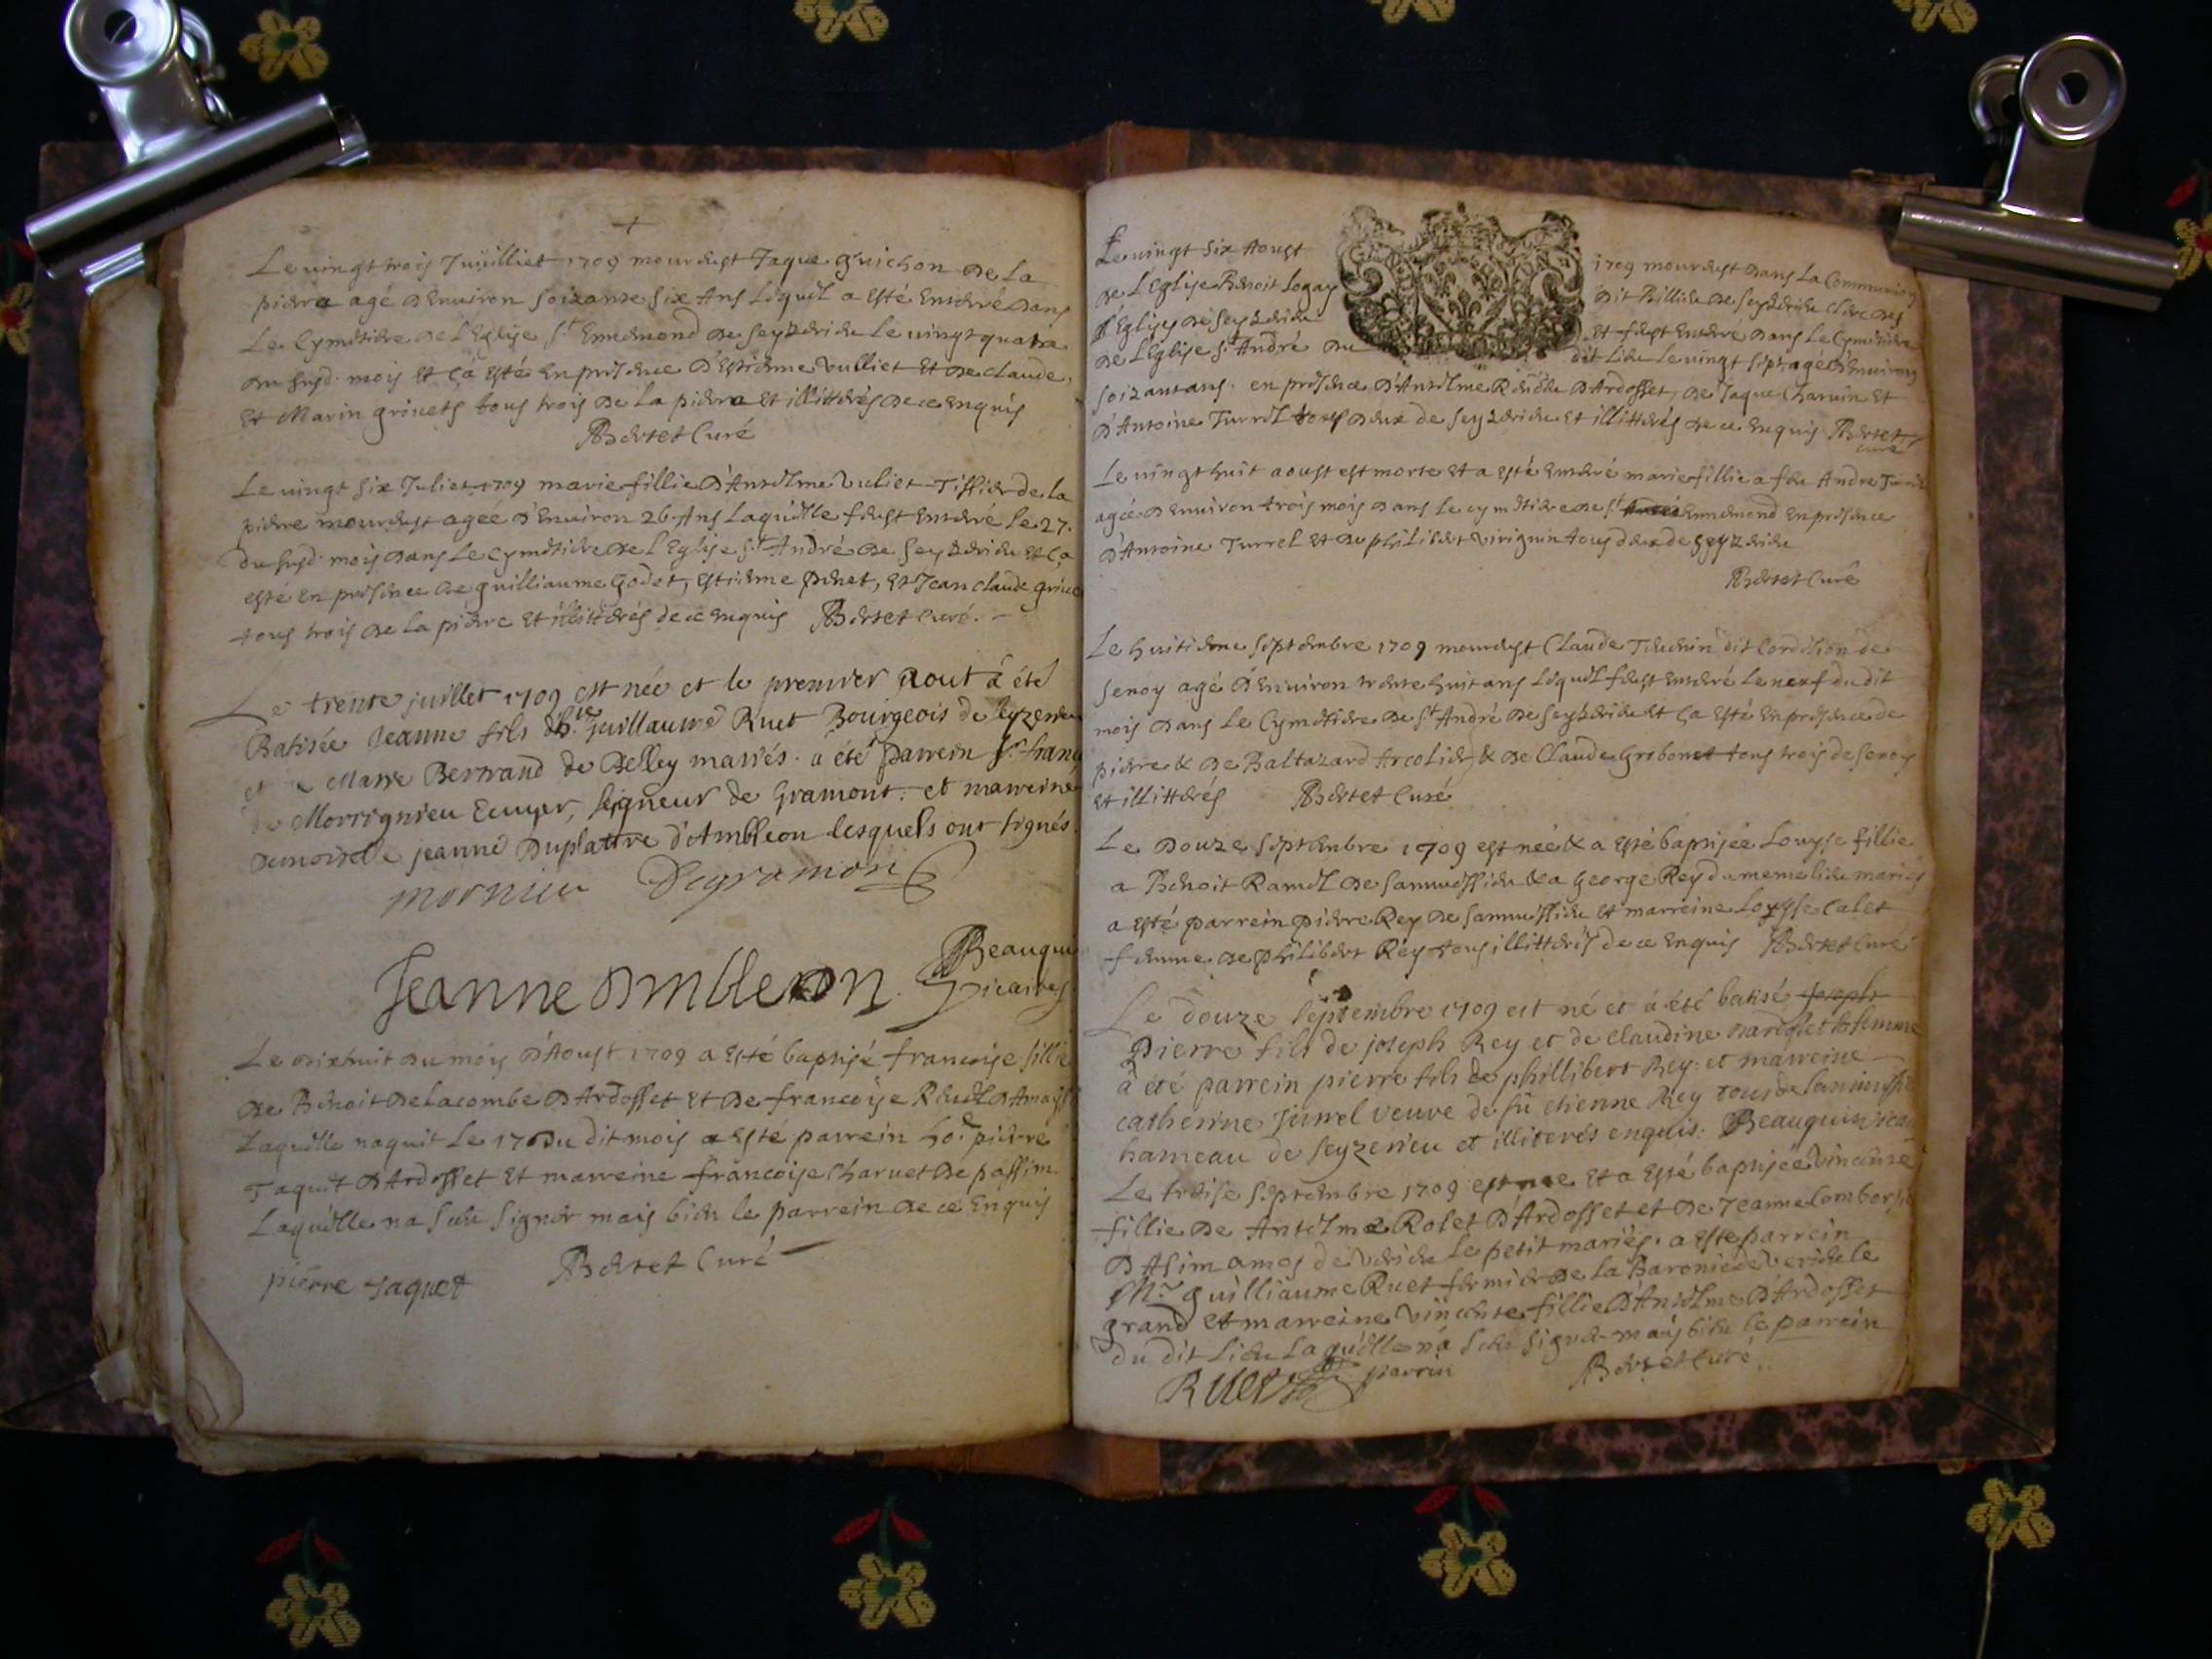 Le uingt trois Juuilliet 1709 mourust Jaque guichon de la
pierre agé d'enuiron soixante six Ans lequel a esté enterré dans
Le Cymetiere de l'Eglise St Ennemond de seyzerieu le uingt quatre
du susd. mois et ça esté en présence d'Estienne vulliet et de claude,
et Marin griuets tous trois de la pierre et illitterés de ce enquis
Bertet Curé
Le uingt six Juliet 1709 marie fillie d'Antelme vuliet Tissier de la
pierre mourust ageé d'enuiron 26 Ans laquelle fust enterré le 27.
du susd. mois dans le cymetiere de l'Eglise St André de seyzerieu et ça
esté en présence de guilliaume godet, estienne penet, et Jean claude griue
tous trois de la pierre et illitterés de ce enquis Bertet Curé.
Le trente juillet 1709 est née et le premier aout à été
Batisée Jeanne fils d'h. guillaume Ruet Bourgeois de seyzerieu
et Marie Bertrand de Belley mariés. a été parrein Sr franç
de Mornieu Ecuyer, seigneur de Gramont. et marreine
demoiselle jeanne Duplatre d'Ambleon lesquels ont signés.
mornieu Degramon
Jeanne Ambleon. Beauqui
vicaire
Le dixhuit du mois d'Aoust 1709 a esté baptisé francoise fillie
de Benoit delacombe d'Ardosset et de francoise Reuel d'Ama
Laquelle naquit le 17 du dit mois a esté parrein ho. pierre
Jaquet d'Ardosset et marreine francoise Charuet de passim
Laquelle na sceu signer mais bien le parrein de ce enquis
pierre Jaquet Bertet Curé
Le uingt six Aoust 1709 mourust dans la Communion
de L'Eglise Benoit Logay dit Billieu de seyzerieu clerc des
Eglises de seyzerieu et fust enterre dans le Cymetiere
de l'Eglise St André du dit Lieu le uingt sept agé d'enuiron
soixantans. en présence d'Antelme d'Ardosset, de Jaque Charuin et
d'Antoine Turrel tous deux de seyzerieu et illitterés de ce enquis Bertet
curé
Le uingt huit aoust est morte et a esté enterré marie fillie a feu Andre Turrel
agée d'enuiron trois mois dans le cymetiere de St Ennemond en présence
d'Antoine Turrel et de philibert viriguin tous deux de seyzerieu
Bertet Curé
Le huitieme septembre 1709 mourust Claude Teuenin dit Cordelion de
senoy agé d'enuiron trente huit ans lequel fust enterré le neuf du dit
mois dans le Cymetiere de St André de seyzerieu et ça esté en présence de
pierre & de Baltazard Arcolier & de Claude Grobonet tous trois de senoy
et illitterés Bertet Curé
Le Douze septembre 1709 est née & a esté baptisée Louyse fillie
a Benoit Ramel de sammeissieu & a George Rey du meme lieu mariés
a esté parrein pierre Rey de sammeissieu et marreine Loyse Calet
femme de philibert Rey tous illitterés de ce enquis Bertet Curé
Le douze septembre 1709 est né et à été batisé Joseph
Pierre fils de joseph Rey et de claudine sa femme
à été parrein pierre fils de phillibert Rey. et marreine
catherine Jurrel veuve de fû etienne Rey tous de
hameau de seyzerieu et illiterés enquis. Beauquis vicai
Le treise septembre 1709 est nee et a esté baptisée vincente
fillie de Antelme Rolet d'Ardosset et de Jeanne
d'Asim de virieu Le petit mariés. a este parrein
Mr guilliaume Ruet fermier de la Baronie de verieu le
grand et marreine vincente fillie d'Antelme d'Ardosset
du dit Lieu Laquelle na sceu signer mais bien le parrein
Ruet parrin Bertet Curé.